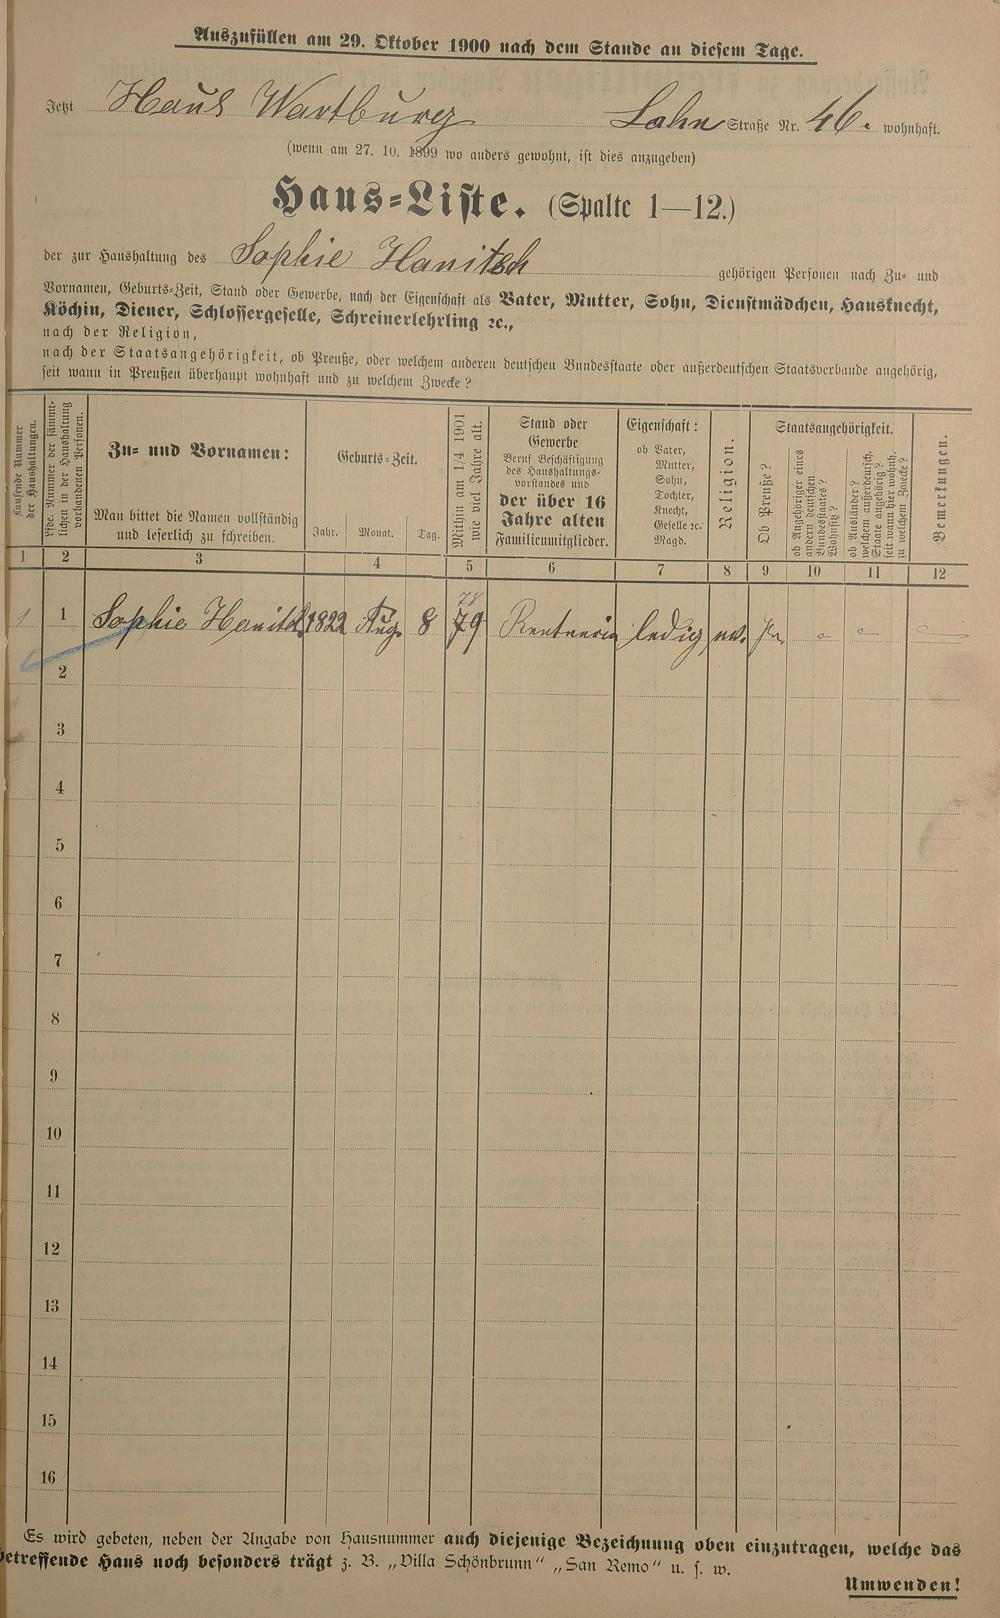 Auszufüllen am 29. Oktober 1900 nach dem Stande an diesem Tage.
Jetzt Haus Wartburg Lahn Straße Nr. 46. wohnhaft.
(wenn am 27. 10. 1899 wo anders gewohnt, ist dies anzugeben)
Haus=Liste. (Spalte 1—12.)
der zur Haushaltung des Sophie Hanitsch gehörigen Personen nach Zu- und
Vornamen, Geburts-Zeit, Stand oder Gewerbe, nach der Eigenschaft als Vater, Mutter, Sohn, Dienstmädchen, Hausknecht,
Köchin, Diener, Schlossergeselle, Schreinerlehrling ꝛc.,
nach der Religion,
nach der Staatsangehörigkeit, ob Preuße, oder welchem anderen deutschen Bundesstaate oder außerdeutschen Staatsverbande angehörig,
seit wann in Preußen überhaupt wohnhaft und zu welchem Zwecke?
Laufende Nummer
der Haushaltungen.
Lfde. Nummer der sämmt-
lichen in der Haushaltung
vorhandenen Personen.
Zu- und Vornamen:
Man bittet die Namen vollständig
und leserlich zu schreiben.
Geburts-Zeit.
Jahr. Monat. Tag.
Mithin am 1/4 1901
wie viel Jahre alt.
Stand oder
Gewerbe
Beruf Beschäftigung
des Haushaltungs-
vorstandes und
der über 16
Jahre alten
Familienmitglieder.
Eigenschaft:
ob Vater,
Mutter,
Sohn,
Tochter,
Knecht,
Geselle ꝛc.
Magd.
Religion.
Staatsangehörigkeit.
Ob Preuße?
ob Angehöriger eines
andern deutschen
Bundesstaates?
Wohnsitz?
ob Ausländer?
welchem außerdeutsch.
Staate angehörig?
seit wann hier wohnh.
zu welchem Zwecke?
Bemerkungen.
1 2 3 4 5 6 7 8 9 10 11 12
78
1 1 Sophie Hanitsch 1822 Aug. 8 79 Rentnerin ledig ev. Pr.
2
3
4
5
6
7
8
9
10
11
12
13
14
15
16
Es wird gebeten, neben der Angabe von Hausnummer auch diejenige Bezeichnung oben einzutragen, welche das
betreffende Haus noch besonders trägt z. B. „Villa Schönbrunn“ „San Remo“ u. s. w.
Umwenden!